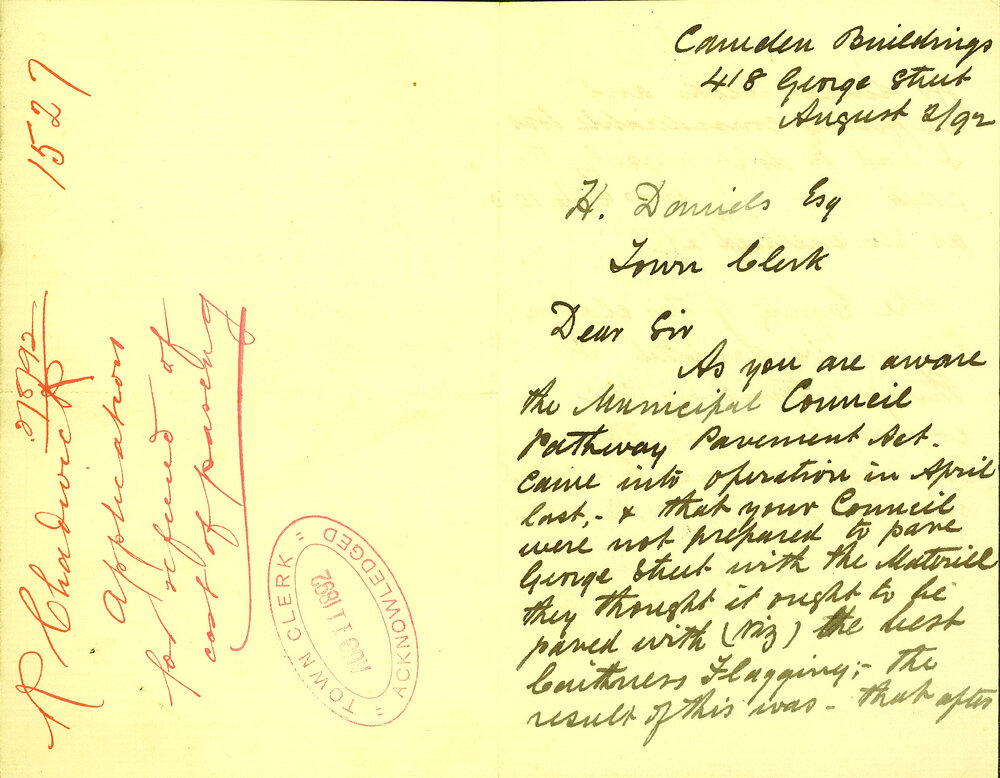 1527
2/8/92
R Chadwick
Application
for refund of
cost of paving
"TOWN CLERK"
ACKNOWLEDGED
AUG 11 1892
Camden Buildings
418 George Street
August 2/92
H. Daniels Esq
Town Clerk
Dear Sir
As you are aware
the Municipal Council
Pathway Pavement Act.
came into operation in April
last,- & that your Council
were not prepared to pave
George Street with the Materiel
they thought it ought to be
paved with (viz) the best
Caithness Flagging;- the
result of this was - that after